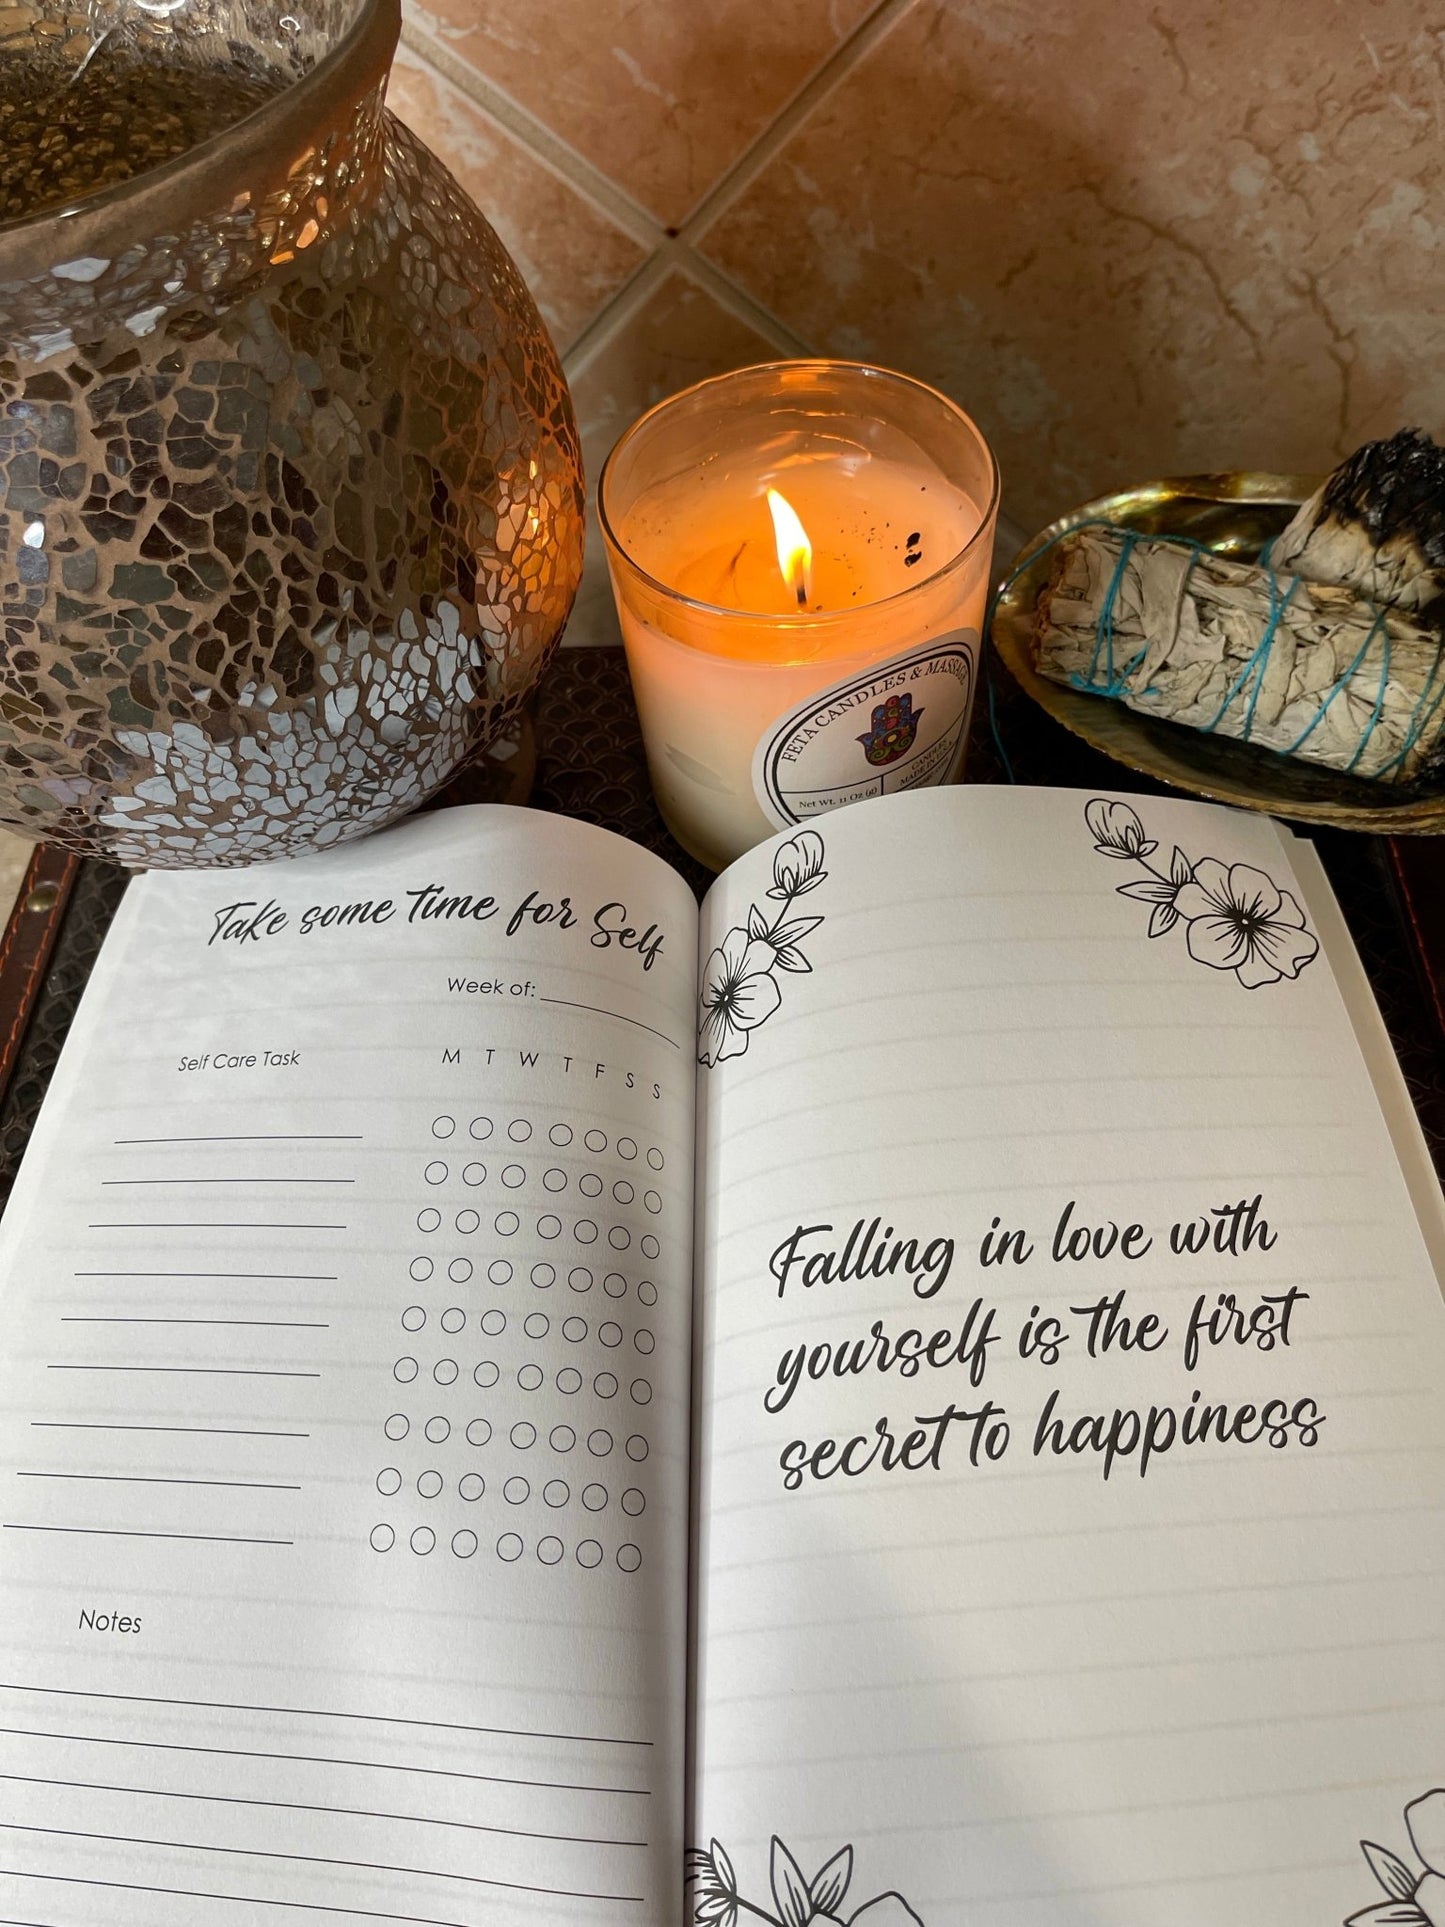 FETA CANDLES & MASSAGE
CANDLE
MADE IN
Net Wt. 11 Oz (g)
Take some time for Self
Week of:
Self Care Task M T W T F S S
Notes
Falling in love with
yourself is the first
secret to happiness